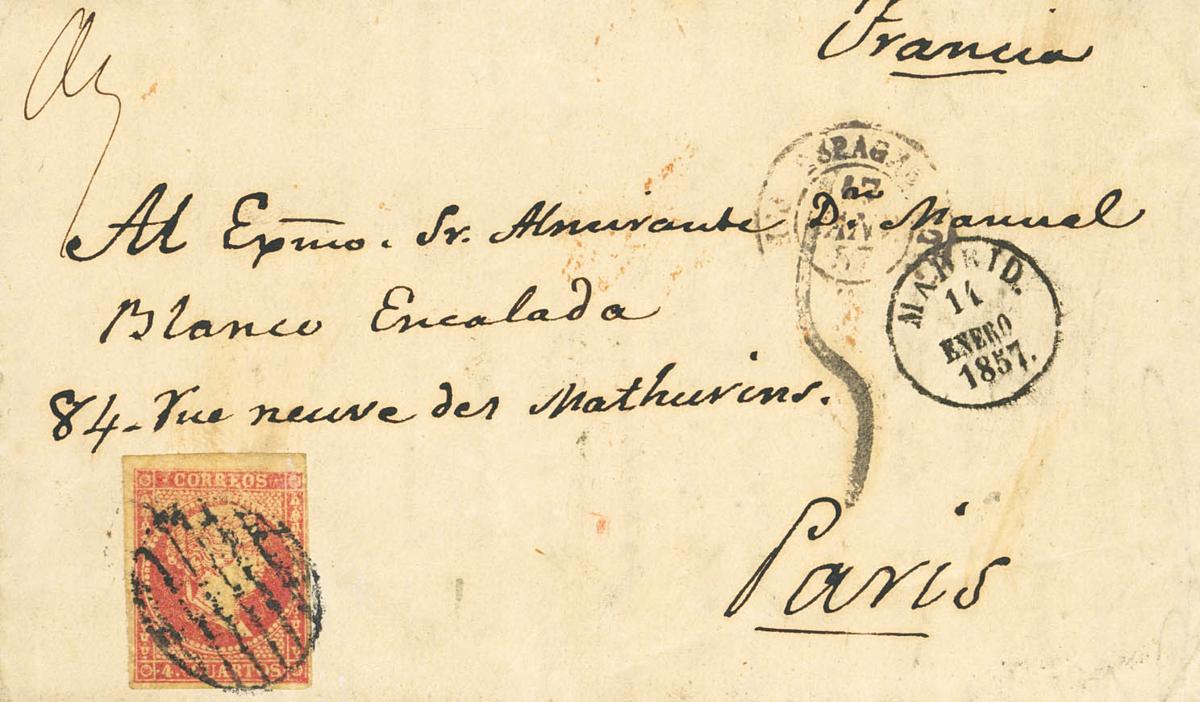 Francia
Al Exmo. Sr. Almirante Dn. Manuel
Blanco Encalada
84. rue neuve des Mathurins.
Paris
MADRID.
ENERO
1857.
CORREOS
4. CUARTOS